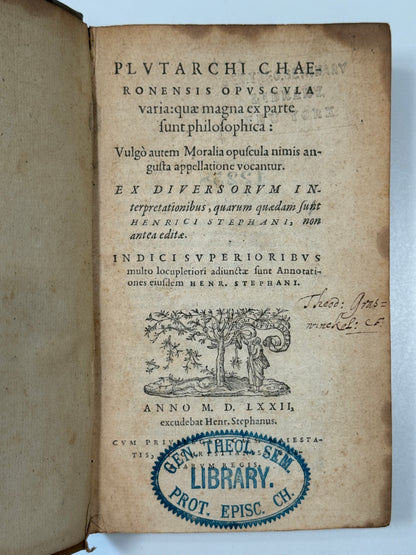 PLVTARCHI CHAE-
RONENSIS OPVSCVLA
varia: quæ magna ex parte
sunt philosophica:
Vulgò autem Moralia opuscula nimis an-
gusta appellatione vocantur.
EX DIVERSORVM IN-
terpretationibus, quarum quædam sunt
HENRICI STEPHANI, non
antea editæ.
INDICI SVPERIORIBVS
multo locupletiori adiunctæ sunt Annotati-
ones eiusdem HENR. STEPHANI.
Theod: Gras-
winckel: CF.
ANNO M. D. LXXII,
excudebat Henr. Stephanus.
CVM PRIV
IESTA-
TIS,
ARVM REGIS
GEN. THEOL. SEM.
LIBRARY.
PROT. EPISC. CH.